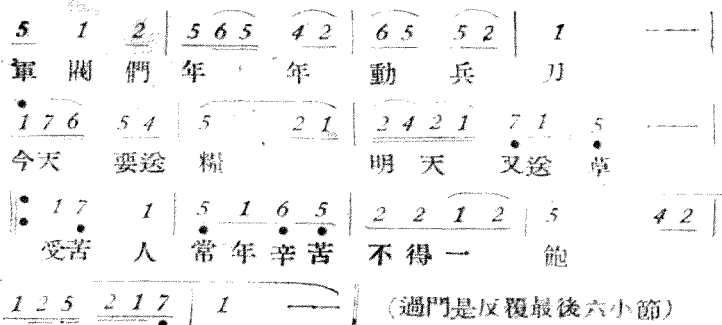 5 1 2 | 5 6 5 4 2 | 6 5 5 2 | 1 — |
軍閥們年年動兵刀
1 7 6 5 4 | 5 2 1 | 2 4 2 1 7 1 5 —
今天要送糧明天又送草
1 7 1 | 5 1 6 5 | 2 2 1 2 | 5 4 2 |
受苦人常年辛苦不得一飽
1 2 5 2 1 7 | 1 — | (過門是反覆最後六小節)